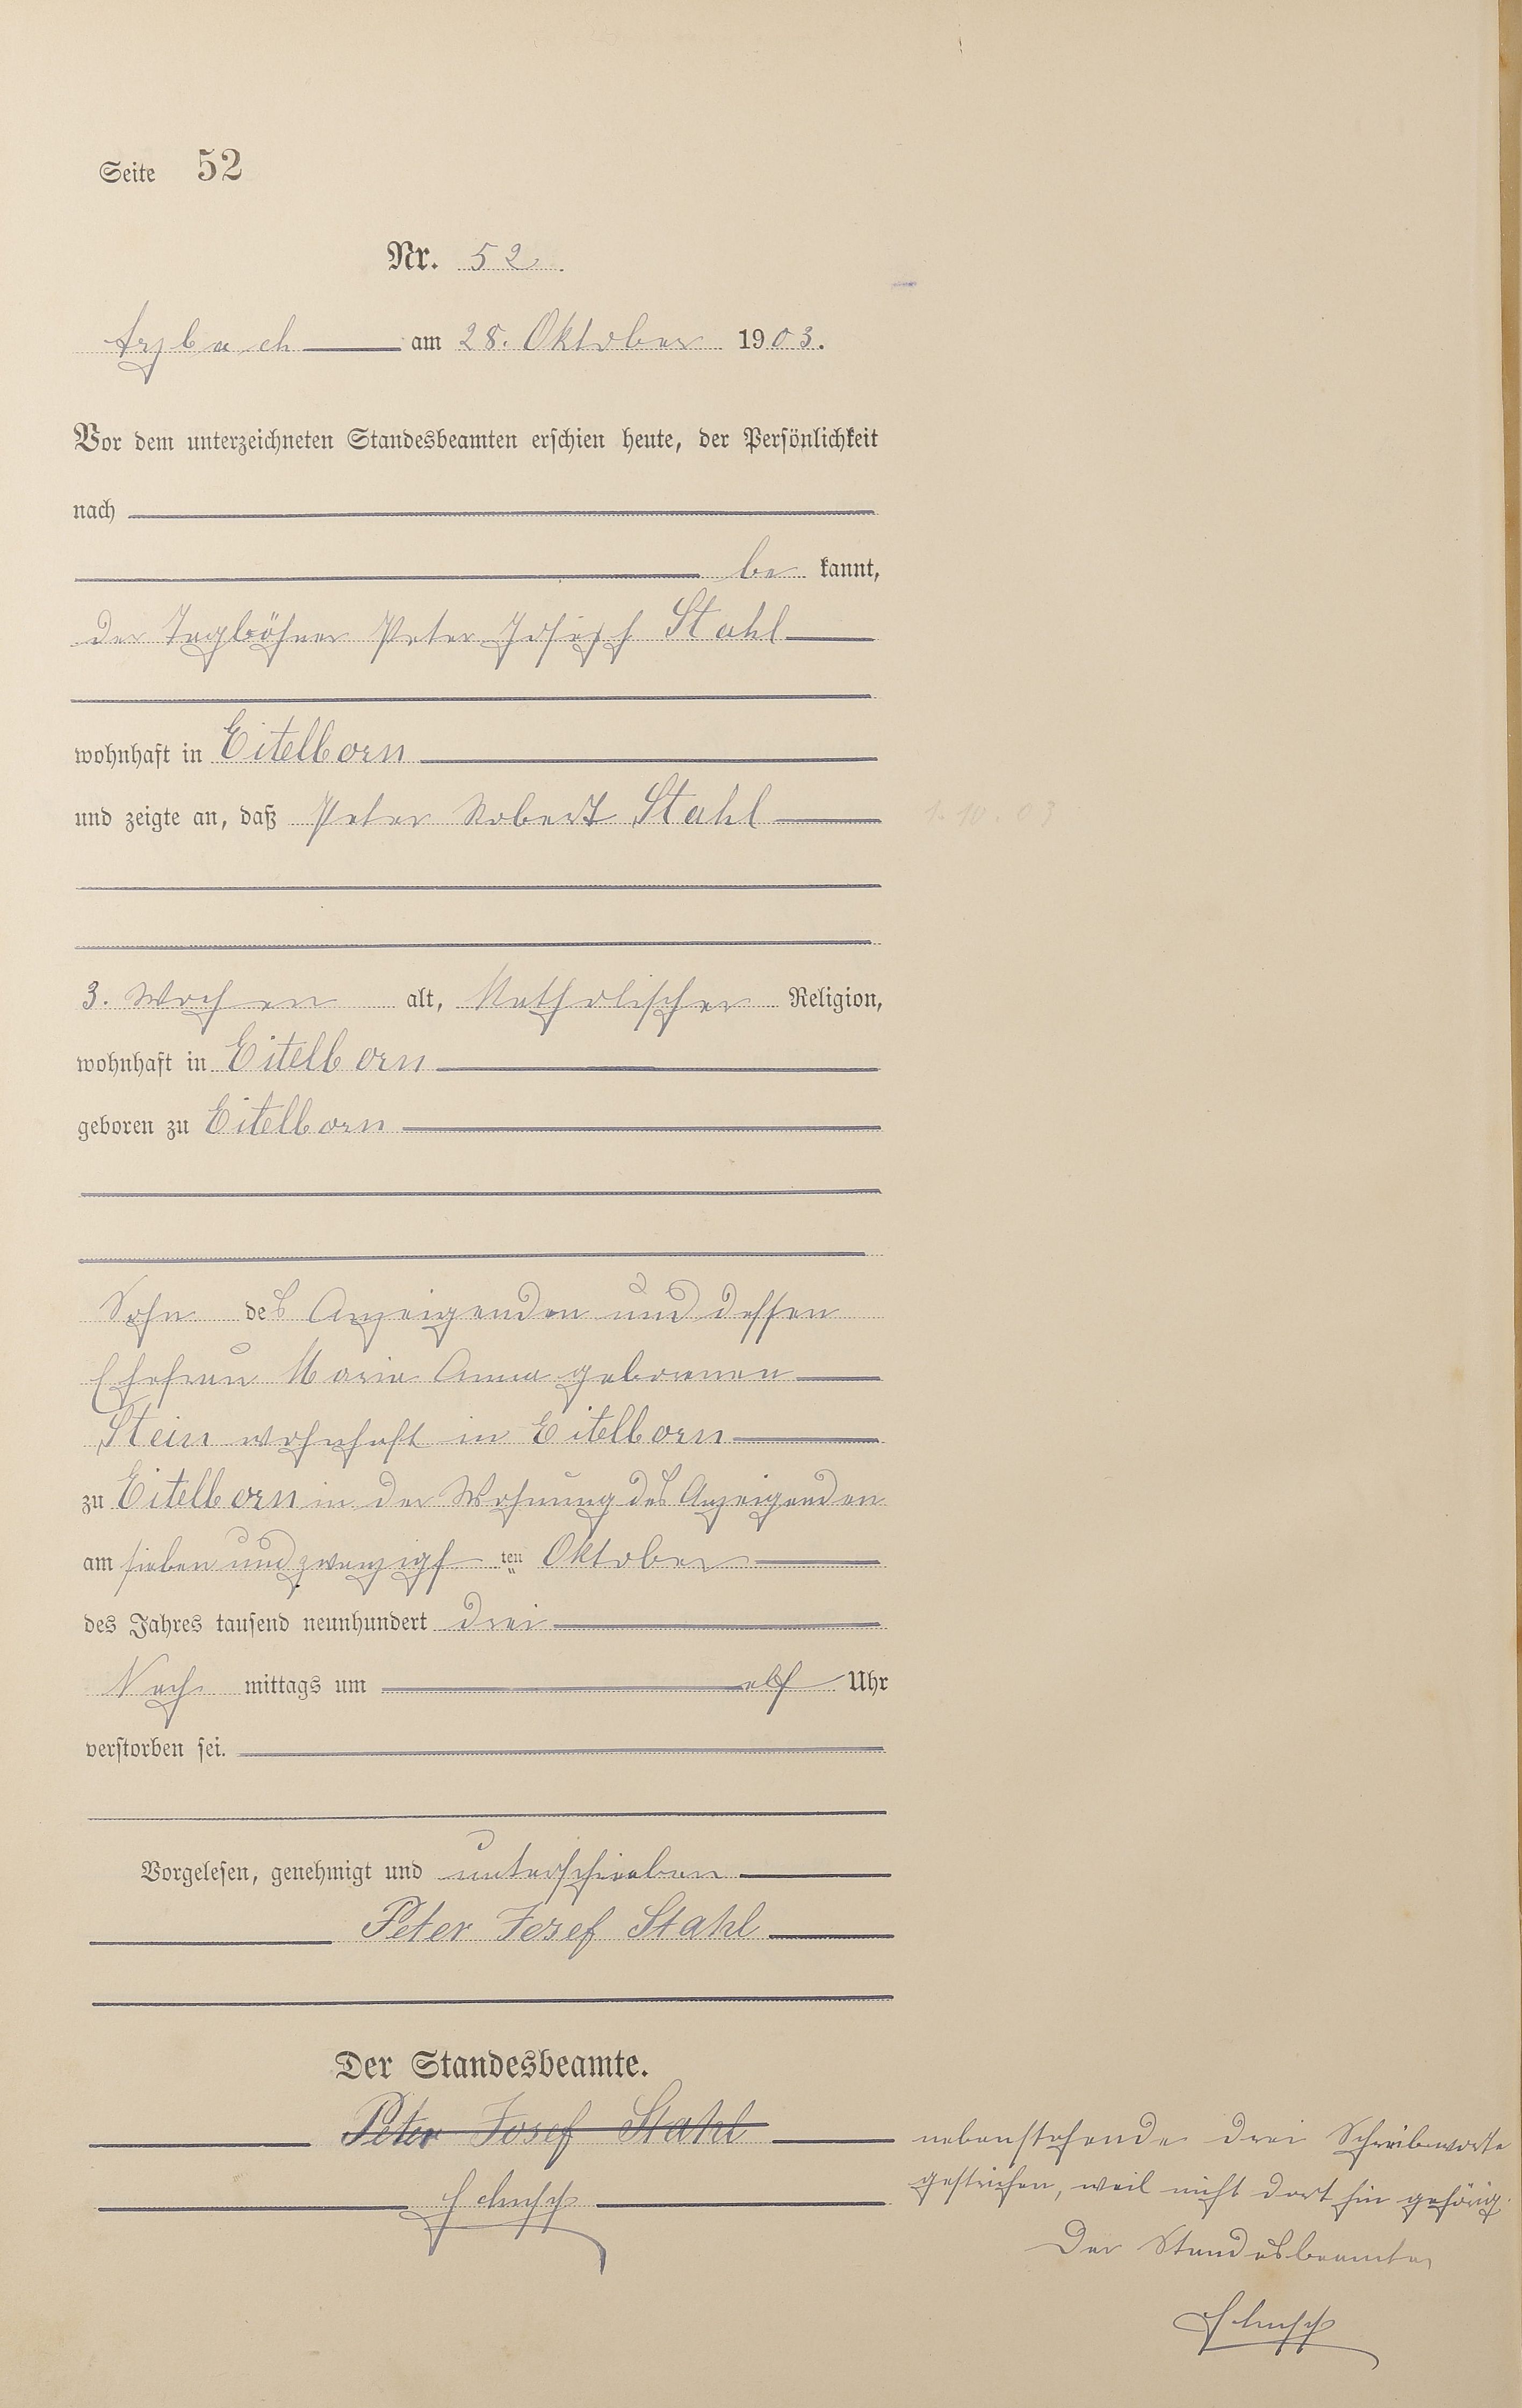 Seite 52
Nr. 52.
Arzbach am 28. Oktober 1903.
Vor dem unterzeichneten Standesbeamten erschien heute, der Persönlichkeit
nach
be kannt,
der Taglöhner Peter Joseph Stahl
wohnhaft in Eitelborn
und zeigte an, daß Peter Robert Stahl
1.10.03
3. Wochen alt, Katholischer Religion,
wohnhaft in Eitelborn
geboren zu Eitelborn
Sohn des Anzeigenden und dessen
Ehefrau Maria Anna geborenen
Stein wohnhaft in Eitelborn
zu Eitelborn in der Wohnung des Anzeigenden
am sieben und zwanzigs ten Oktober
des Jahres tausend neunhundert drei
Nach mittags um elf Uhr
verstorben sei.
Vorgelesen, genehmigt und unterschrieben
Peter Josef Stahl
Der Standesbeamte.
Peter Josef Stahl
nebenstehende drei Schreibworte
gestrichen, weil nicht dort hin gehörig.
Der Standesbeamte